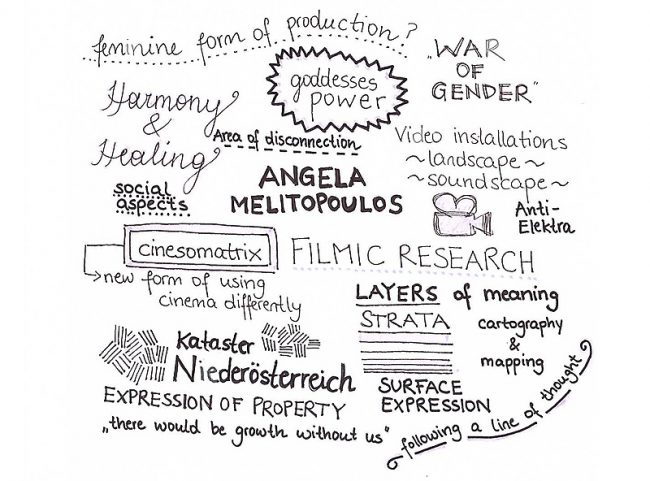 feminine form of production?
„WAR
OF
GENDER"
goddesses
power
Harmony
&
Healing
Area of disconnection
Video installations
~landscape~
~soundscape~
social
aspects
ANGELA
MELITOPOULOS
Anti-
Elektra
cinesomatrix
FILMIC RESEARCH
new form of using
cinema differently
LAYERS of meaning
STRATA
cartography
&
mapping
Kataster
Niederösterreich
SURFACE
EXPRESSION
EXPRESSION OF PROPERTY
„there would be growth without us"
following a line of thought